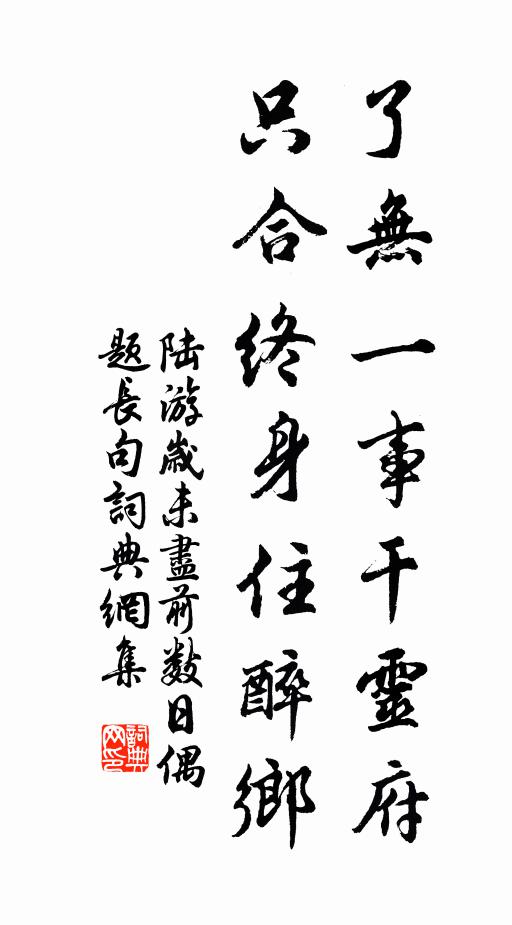 了無一事干靈府
只合終身住醉鄉
陆游歲未盡前数日偶
题長句詞典網集
詞典
网印